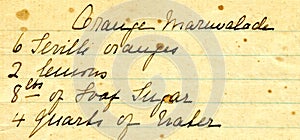 Orange Marmalade
6 Seville oranges
2 lemons
8 lbs of Loaf Sugar
4 quarts of Water